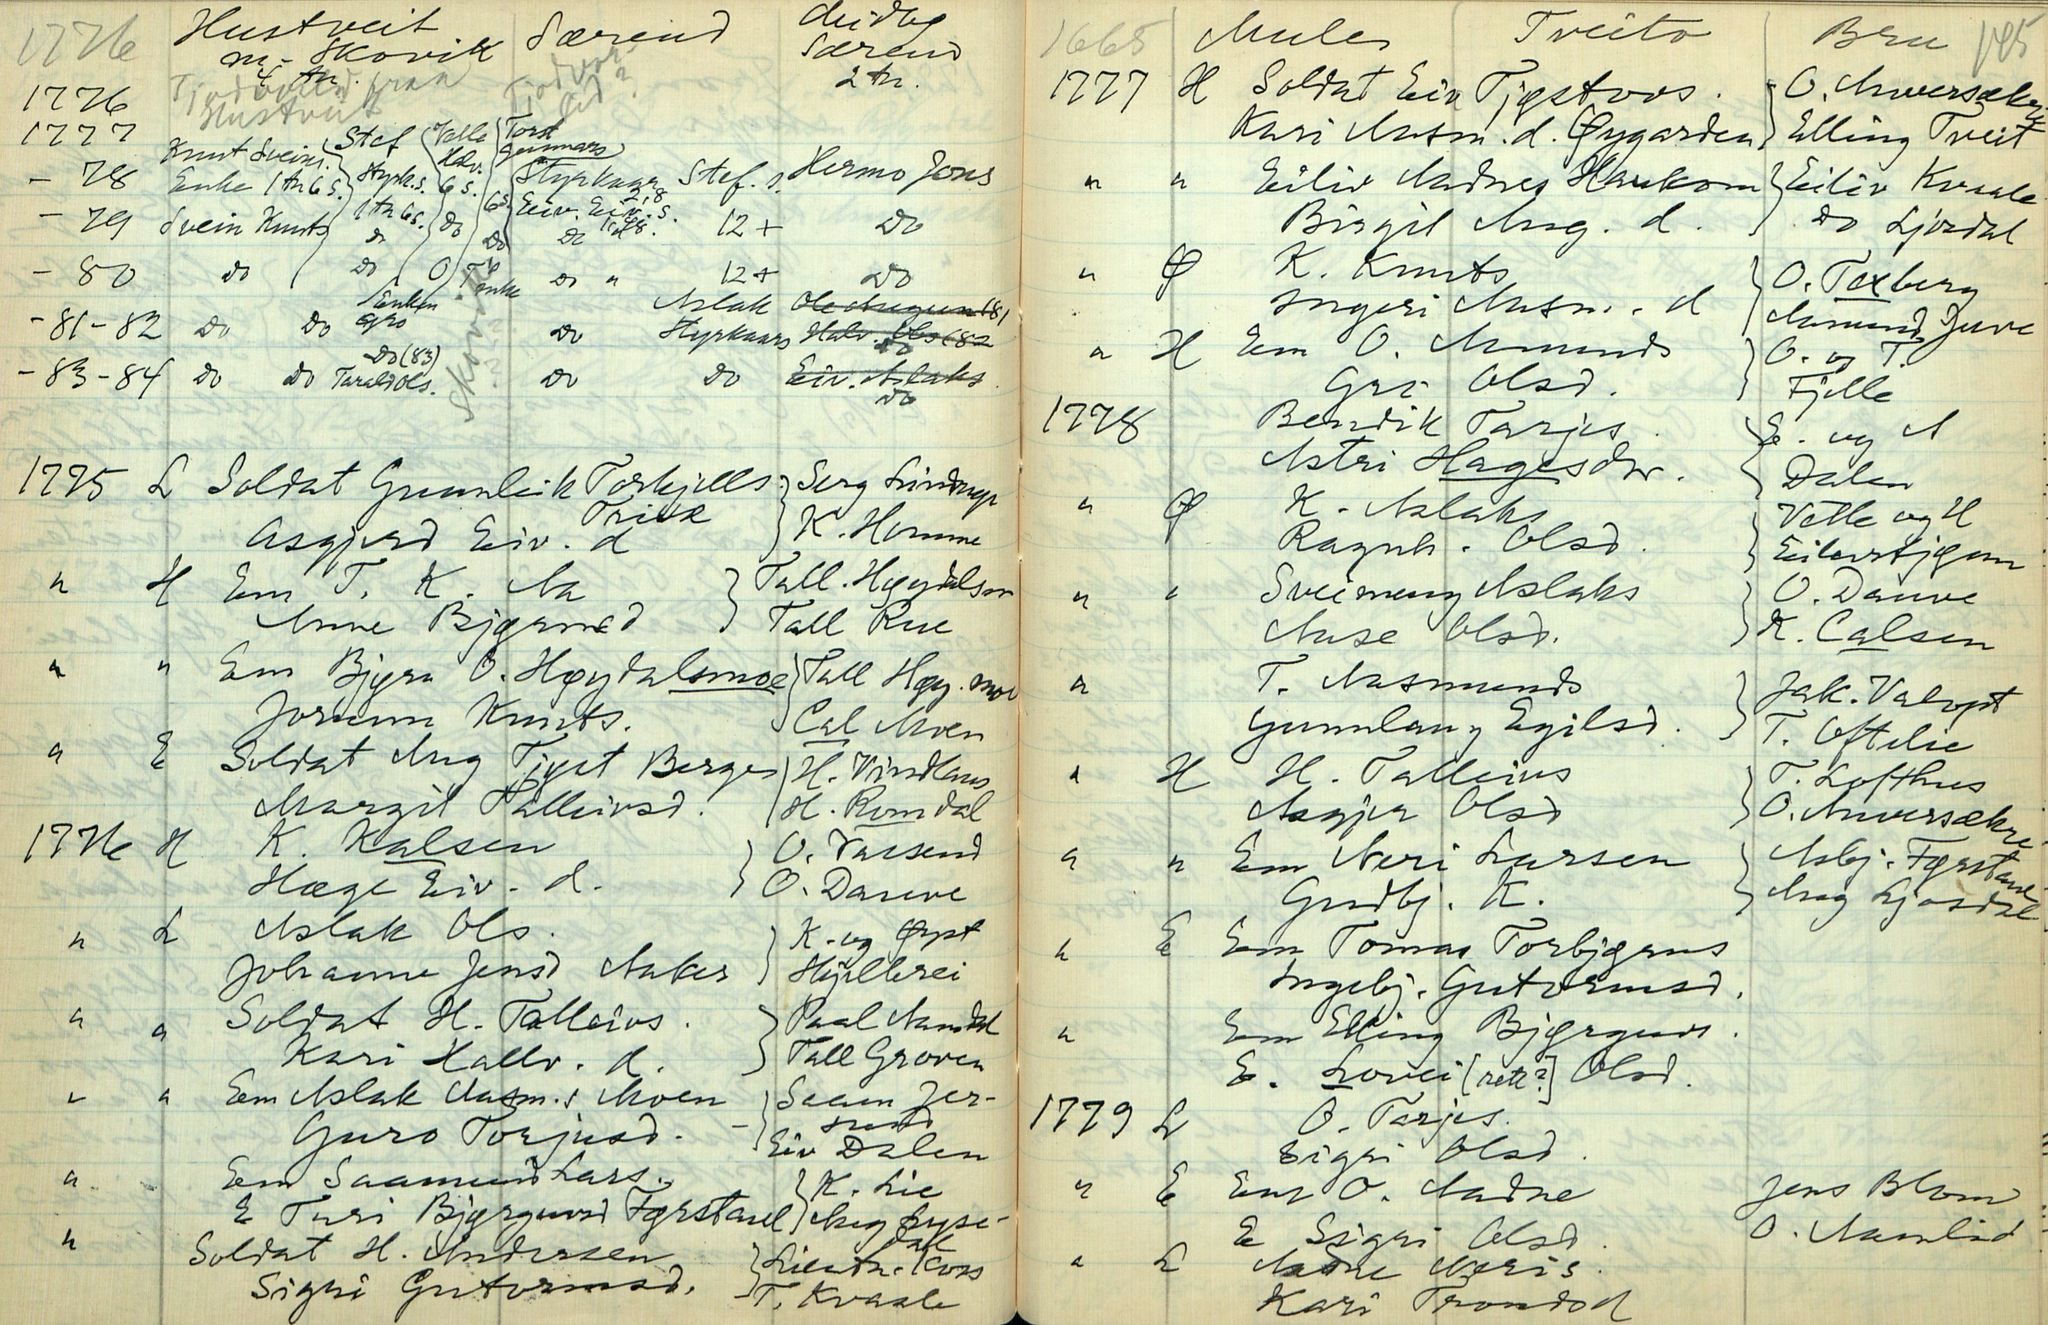 1776 Hustveit Særend Midbø
m. Skovik Særend
4 tn. 2 tn.
1776 Tjodvoll fraa
Hustveit
1777 Stef Tord
Gunnars
Knut Sveins.
- 78 Enke 1 tn 6 s. Styrk.s. 6 s. Styrkaar Stef. s. Hermo Jons
- 79 Svein Knuts 1 tn 6 s. Do Do Eiv. Eiv. s. 12+ Do
- 80 Do Do Do " 12+ Do
Enken Aslak
- 81 - 82 Do Do Gro Do Styrkaars Halv. Ols (82
Do
Do (83)
- 83 - 84 Do Do Tarald Ols. Do Do Eiv. Aslaks
Do
Skovik
1775 L Soldat Gunnleik Torkjells. Serg Lindrup
Asgjerd Eiv. d K. Homme
" H Em T. K. Aa Tall. Høydalsm
Anne Bjørnsd Tall Rue
" " Em Bjørn O. Høydalsmoe Tall Høy. moe
Jorunn Knuts. Cal Moen
" E Soldat Aug Tjøst Berges H. Vindlaus
Margit Talleivsd. H. Romdal
1776 H K. Kalsen O. Vaasend
Hæge Eiv. d. O. Dauve
" L Aslak Ols. K. og Øyst
Johanne Jensd Aaker Hyllerei
" " Soldat H. Talleivs. Paal Aamdal
Kari Hallv. d. Tall Groven
" " Em Aslak Aasm.s Moen Saam Jer-
Guro Torjusd. - Eiv Dalen
" Em Saamund Lars. K. Lie
E Turi Bjørguvsd Førstøul Aug Lyse-
dal
" Soldat H. Andersen Lieutn. Koss
Sigri Gutormsd. T. Kvaale
1665 Mules Tveito Bru 195
1777 H Soldat Eiv Tjøstovs. O. Anversækre
Kari Aasm. d. Øygarden Elling Tveit
" " Eiliv Aadnes Haukom Eiliv Kvaale
Birgit Aug. d. Do Ljosdal
" Ø K. Knuts O. Taxberg
Ingeri Aasm. d Aamund Juve
" H Em O. Amunds O. og T.
Gro Olsd. Fjelle
1778 Bendik Tarjes. E. og A
Astri Hagesdtr. Dalen
" Ø K. Aslaks Vetle og H
Ragnh. Olsd. Eilevstjønn
" " Sveinung Aslaks O. Dauve
Aase Olsd. K. Calsen
" T. Aasmunds Jak. Valøyt
Gunnlaug Egilsd. T. Oftelie
" H H. Talleivs T. Lofthus
Asgjer Olsd O. Anversækre
" " Em Neri Larsen Asbj. Førstøul
Gudbj. K. Aug Ljosdal
" E Em Tomas Torbjørns
Ingebj. Gutormsd.
" Em Elling Bjørguvs.
E. Lovei [rett?] Olsd.
1779 L O. Tarjes.
Sigri Olsd.
" E Em O. Aadne Jens Blom
E Sigri Olsd. O. Aamlid
" L Aadne Neris.
Kari Trondsd